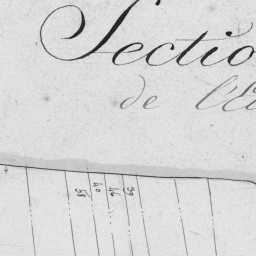 Sectio
de l'E
39
46
40
58